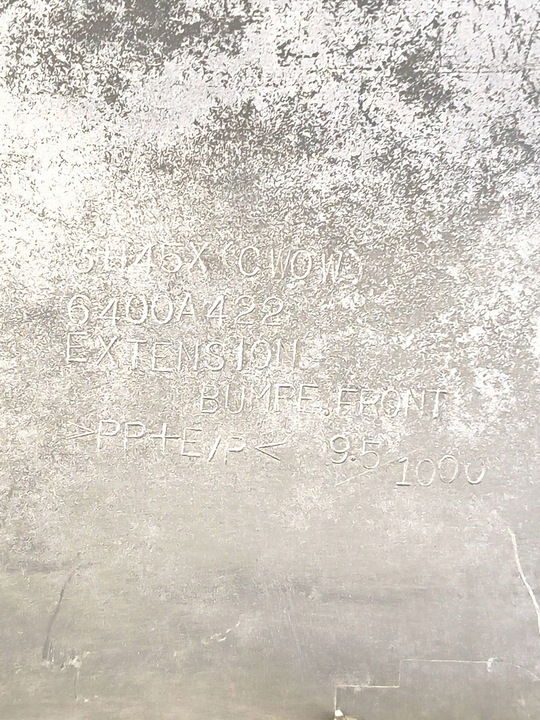 SH45X (CWOW)
6400A422
EXTENSION
BUMPE,FRONT
>PP+E/P< 9.5/1000